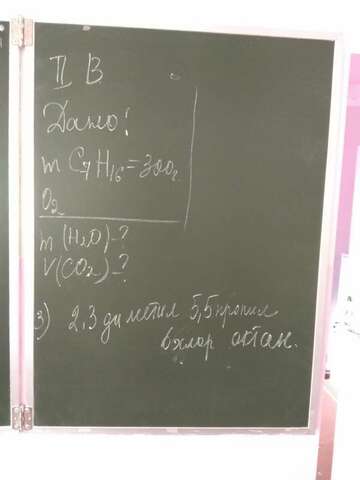 II В
Дано:
m C₇H₁₆=300г
O₂
m (H₂O)-?
V(CO₂)-?
3) 2,3 диметил 5,5 пропил
6 хлор октан.